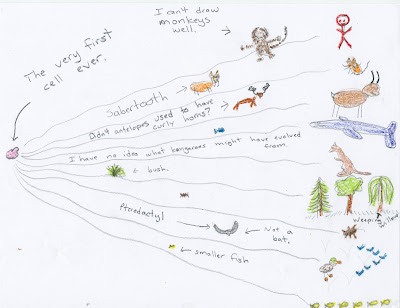 I can't draw
monkeys
well.
The very first
cell ever.
Sabertooth
Didn't antelopes used to have
curly horns?
I have no idea what kangaroos might have evolved
from.
bush.
Weeping
Willow
Pterodactyl
Not a
bat.
smaller fish